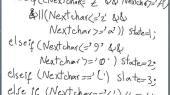 if(Nextchar<='z' && Nextchar>='A'
&||(Nextchar<='z' &&
Nextchar>='a')) state=1;
elseif(Nextchar<='9' &&
Nextchar>='0') state=2;
elseif(Nextchar=='(') state=3;
else if (Nextchar==')')